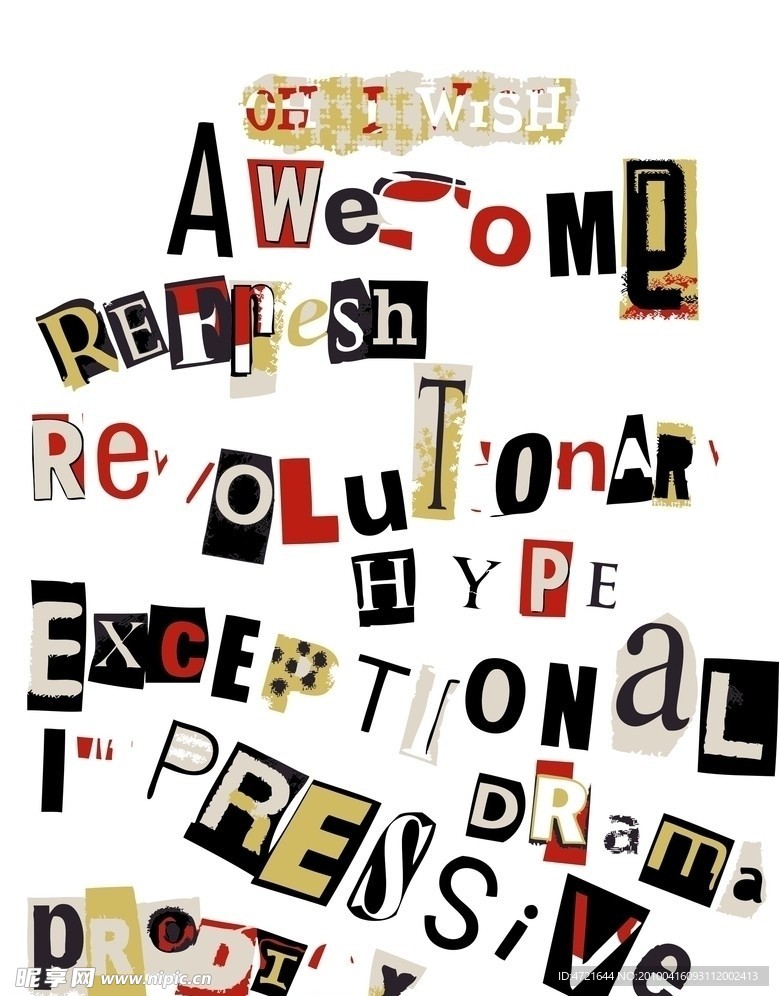 OH I WISH
AWeSOME
REFreSh
ReVOLuTiOnARY
HYPE
EXCEPTIONaL
IMPRESSiVe
DRama
PRODIGY
昵享网 www.nipic.cn
ID:4721644 NO:20100416093112002413